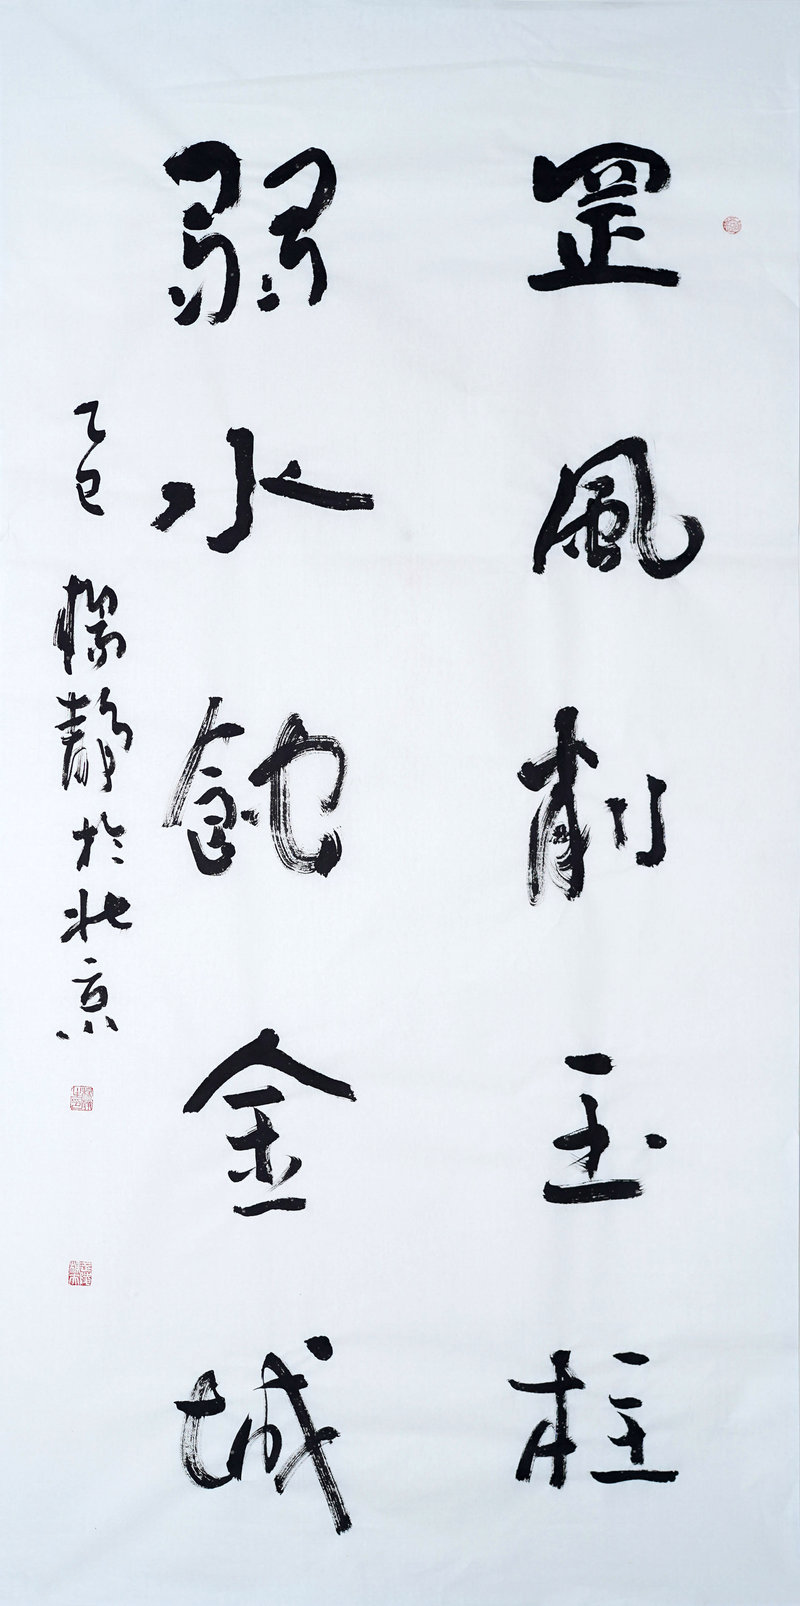 罡風削玉柱
弱水蝕金城
乙巳楊靜於北京